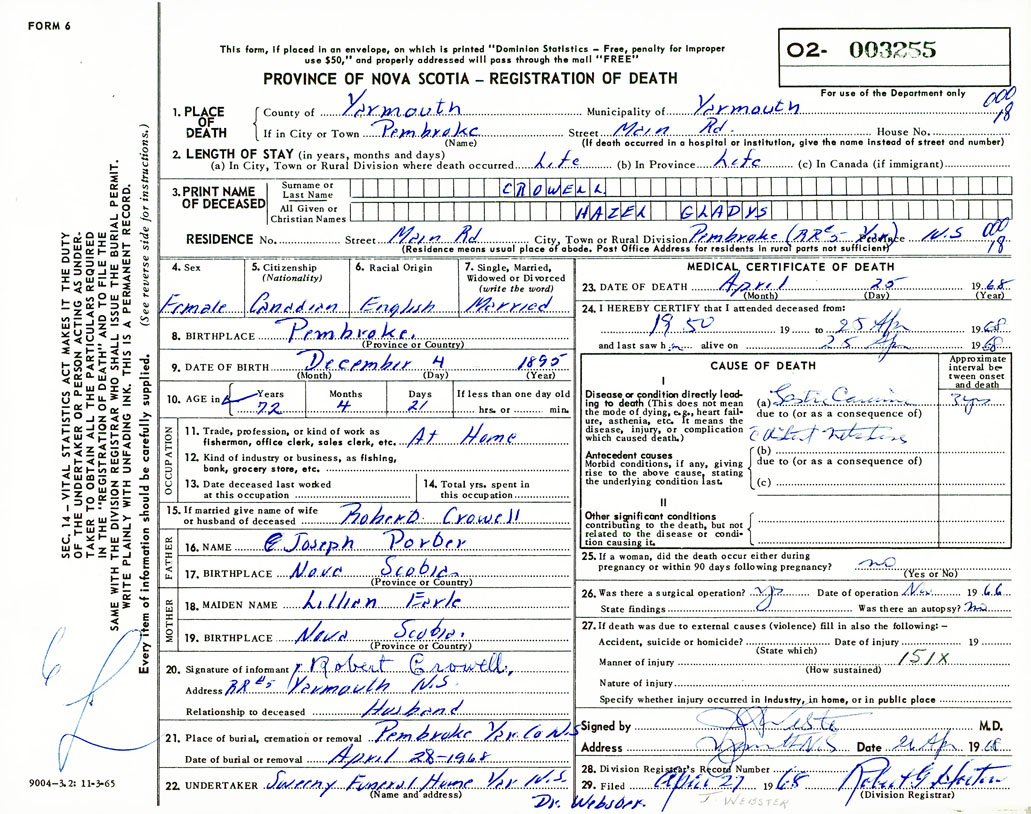 FORM 6
This form, if placed in an envelope, on which is printed "Dominion Statistics – Free, penalty for improper
use $50," and properly addressed will pass through the mail "FREE"
O2- 003255
For use of the Department only
PROVINCE OF NOVA SCOTIA – REGISTRATION OF DEATH
SEC. 14 – VITAL STATISTICS ACT MAKES IT THE DUTY
OF THE UNDERTAKER OR PERSON ACTING AS UNDER-
TAKER TO OBTAIN ALL THE PARTICULARS REQUIRED
IN THE "REGISTRATION OF DEATH" AND TO FILE THE
SAME WITH THE DIVISION REGISTRAR WHO SHALL ISSUE THE BURIAL PERMIT.
WRITE PLAINLY WITH UNFADING INK. THIS IS A PERMANENT RECORD.
Every item of information should be carefully supplied. (See reverse side for instructions.)
1. PLACE OF DEATH
County of Yarmouth Municipality of Yarmouth 000
If in City or Town Pembroke Street Main Rd. House No. 18
(Name) (If death occurred in a hospital or institution, give the name instead of street and number)
2. LENGTH OF STAY (in years, months and days)
(a) In City, Town or Rural Division where death occurred Life (b) In Province Life (c) In Canada (if immigrant)
3. PRINT NAME OF DECEASED
Surname or Last Name CROWELL
All Given or Christian Names HAZEL GLADYS
RESIDENCE No. Street Main Rd City, Town or Rural Division Pembroke (RR#5- Yar) Province N.S 000
(Residence means usual place of abode. Post Office Address for residents in rural parts not sufficient) 18
4. Sex
Female
5. Citizenship (Nationality)
Canadian
6. Racial Origin
English
7. Single, Married, Widowed or Divorced (write the word)
Married
8. BIRTHPLACE Pembroke.
(Province or Country)
9. DATE OF BIRTH December 4 1895
(Month) (Day) (Year)
10. AGE in Years Months Days If less than one day old
72 4 21 hrs. or min.
OCCUPATION
11. Trade, profession, or kind of work as
fisherman, office clerk, sales clerk, etc. At Home
12. Kind of industry or business, as fishing,
bank, grocery store, etc.
13. Date deceased last worked
at this occupation
14. Total yrs. spent in
this occupation
15. If married give name of wife
or husband of deceased Robert Crowell
FATHER
16. NAME Joseph Porter
17. BIRTHPLACE Nova Scotia
(Province or Country)
MOTHER
18. MAIDEN NAME Lillian Earle
19. BIRTHPLACE Nova Scotia.
(Province or Country)
20. Signature of informant Robert Crowell,
Address RR#5 Yarmouth N.S.
Relationship to deceased Husband
21. Place of burial, cremation or removal Pembroke Yar. Co N.S
Date of burial or removal April 28-1968
22. UNDERTAKER Sweeny Funeral Home Yar N.S.
(Name and address)
MEDICAL CERTIFICATE OF DEATH
23. DATE OF DEATH April 25 1968
(Month) (Day) (Year)
24. I HEREBY CERTIFY that I attended deceased from:
1950 19 to 25 Apr 1968
and last saw h alive on 25 Apr 1968
CAUSE OF DEATH
Approximate
interval be-
tween onset
and death
I
Disease or condition directly lead-
ing to death (This does not mean
the mode of dying, e.g., heart fail-
ure, asthenia, etc. It means the
disease, injury, or complication
which caused death.)
(a) 2yrs
due to (or as a consequence of)
Antecedent causes
Morbid conditions, if any, giving
rise to the above cause, stating
the underlying condition last.
(b)
due to (or as a consequence of)
(c)
II
Other significant conditions
contributing to the death, but not
related to the disease or condi-
tion causing it.
25. If a woman, did the death occur either during
pregnancy or within 90 days following pregnancy? no
(Yes or No)
26. Was there a surgical operation? yes Date of operation Nov 1966
State findings Was there an autopsy? no
27. If death was due to external causes (violence) fill in also the following: –
Accident, suicide or homicide? Date of injury 19
(State which)
Manner of injury 151X
(How sustained)
Nature of injury
Specify whether injury occurred in industry, in home, or in public place
Signed by M.D.
Address Date 26 Apr 1968
28. Division Registrar's Record Number
29. Filed April 27 1968
(Division Registrar)
Dr. Webster.
J. WEBSTER
9004-3.2: 11-3-65